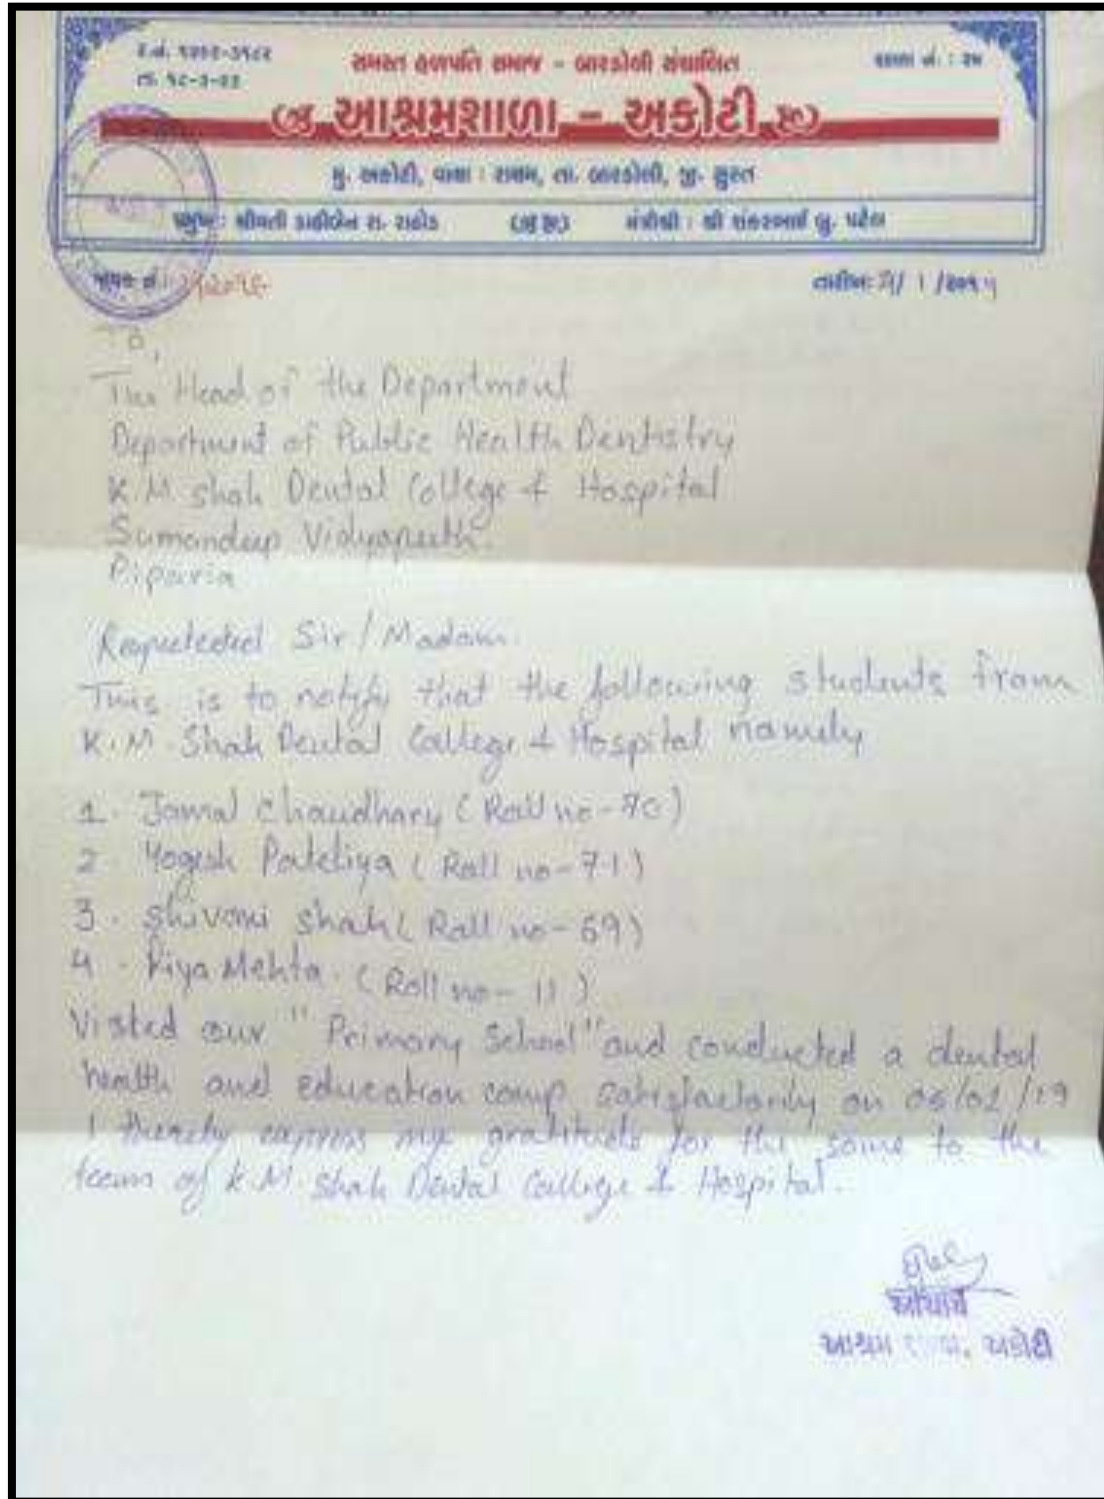 સમસ્ત હળપતિ સમાજ - બારડોલી સંચાલિત
આશ્રમશાળા - અકોટી
મુ. અકોટી, વાયા : રાયમ, તા. બારડોલી, જી. સુરત
પ્રમુખ : શ્રીમતી ડાહીબેન રા. રાઠોડ મંત્રીશ્રી : શ્રી શંકરભાઈ બુ. પટેલ
To,
The Head of the Department
Department of Public Health Dentistry
K.M shah Dental College & Hospital
Sumandeep Vidyapeeth.
Piparia
Respected Sir / Madam.
This is to notify that the following students from
K.M. Shah Dental College & Hospital namely
1. Jamal Chaudhary (Roll no-70)
2 Yogesh (Roll no-71)
3. Shivani Shah (Roll no-69)
4. Riya Mehta. (Roll no-11)
Visted our "Primary School" and conducted a dental
health and education camp satisfactorily on
I thereby express my gratitude for the same to the
team of K.M. Shah Dental College & Hospital.
આચાર્ય
આશ્રમ અકોટી